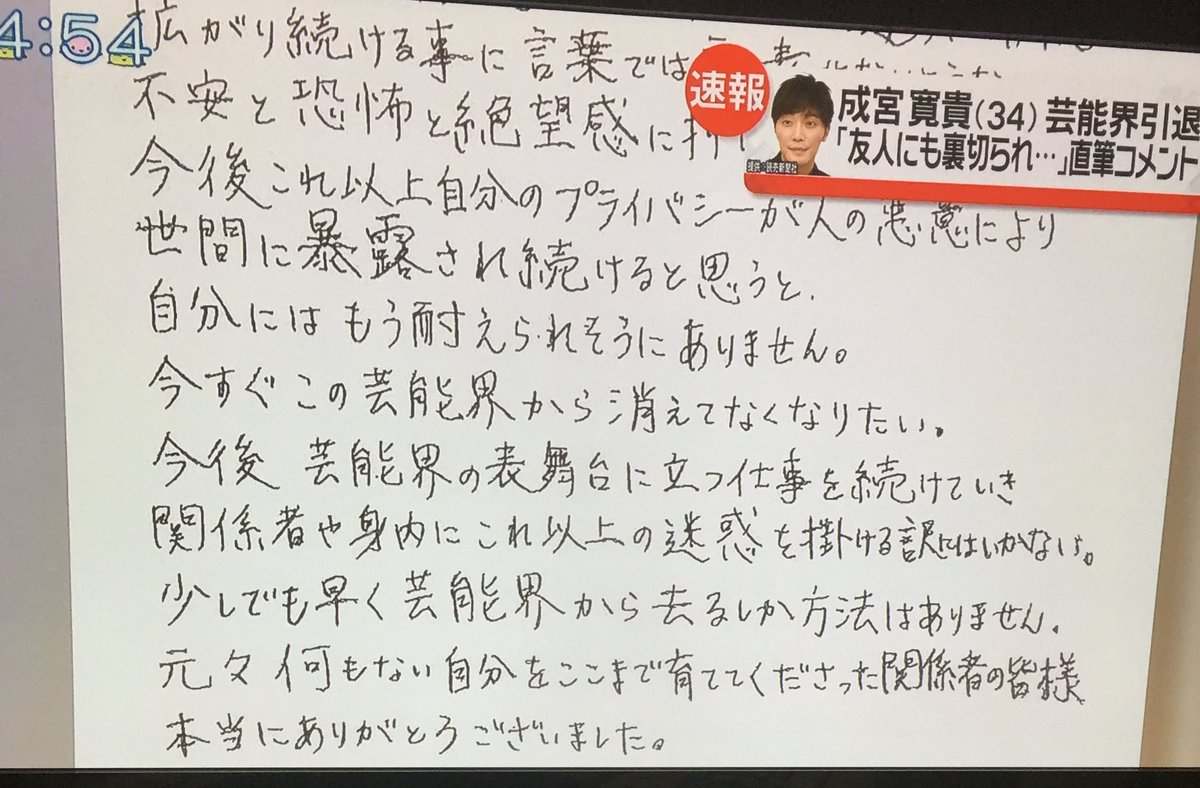 4:54
速報
成宮 寛貴(34) 芸能界引退
「友人にも裏切られ…」直筆コメント
提供:読売新聞社
拡がり続ける事に言葉では
不安と恐怖と絶望感に
今後これ以上自分のプライバシーが人の悪意により
世間に暴露され続けると思うと、
自分にはもう耐えられそうにありません。
今すぐこの芸能界から消えてなくなりたい。
今後 芸能界の表舞台に立つ仕事を続けていき
関係者や身内にこれ以上の迷惑を掛ける訳にはいかない。
少しでも早く芸能界から去るしか方法はありません。
元々何もない自分をここまで育ててくださった関係者の皆様
本当にありがとうございました。